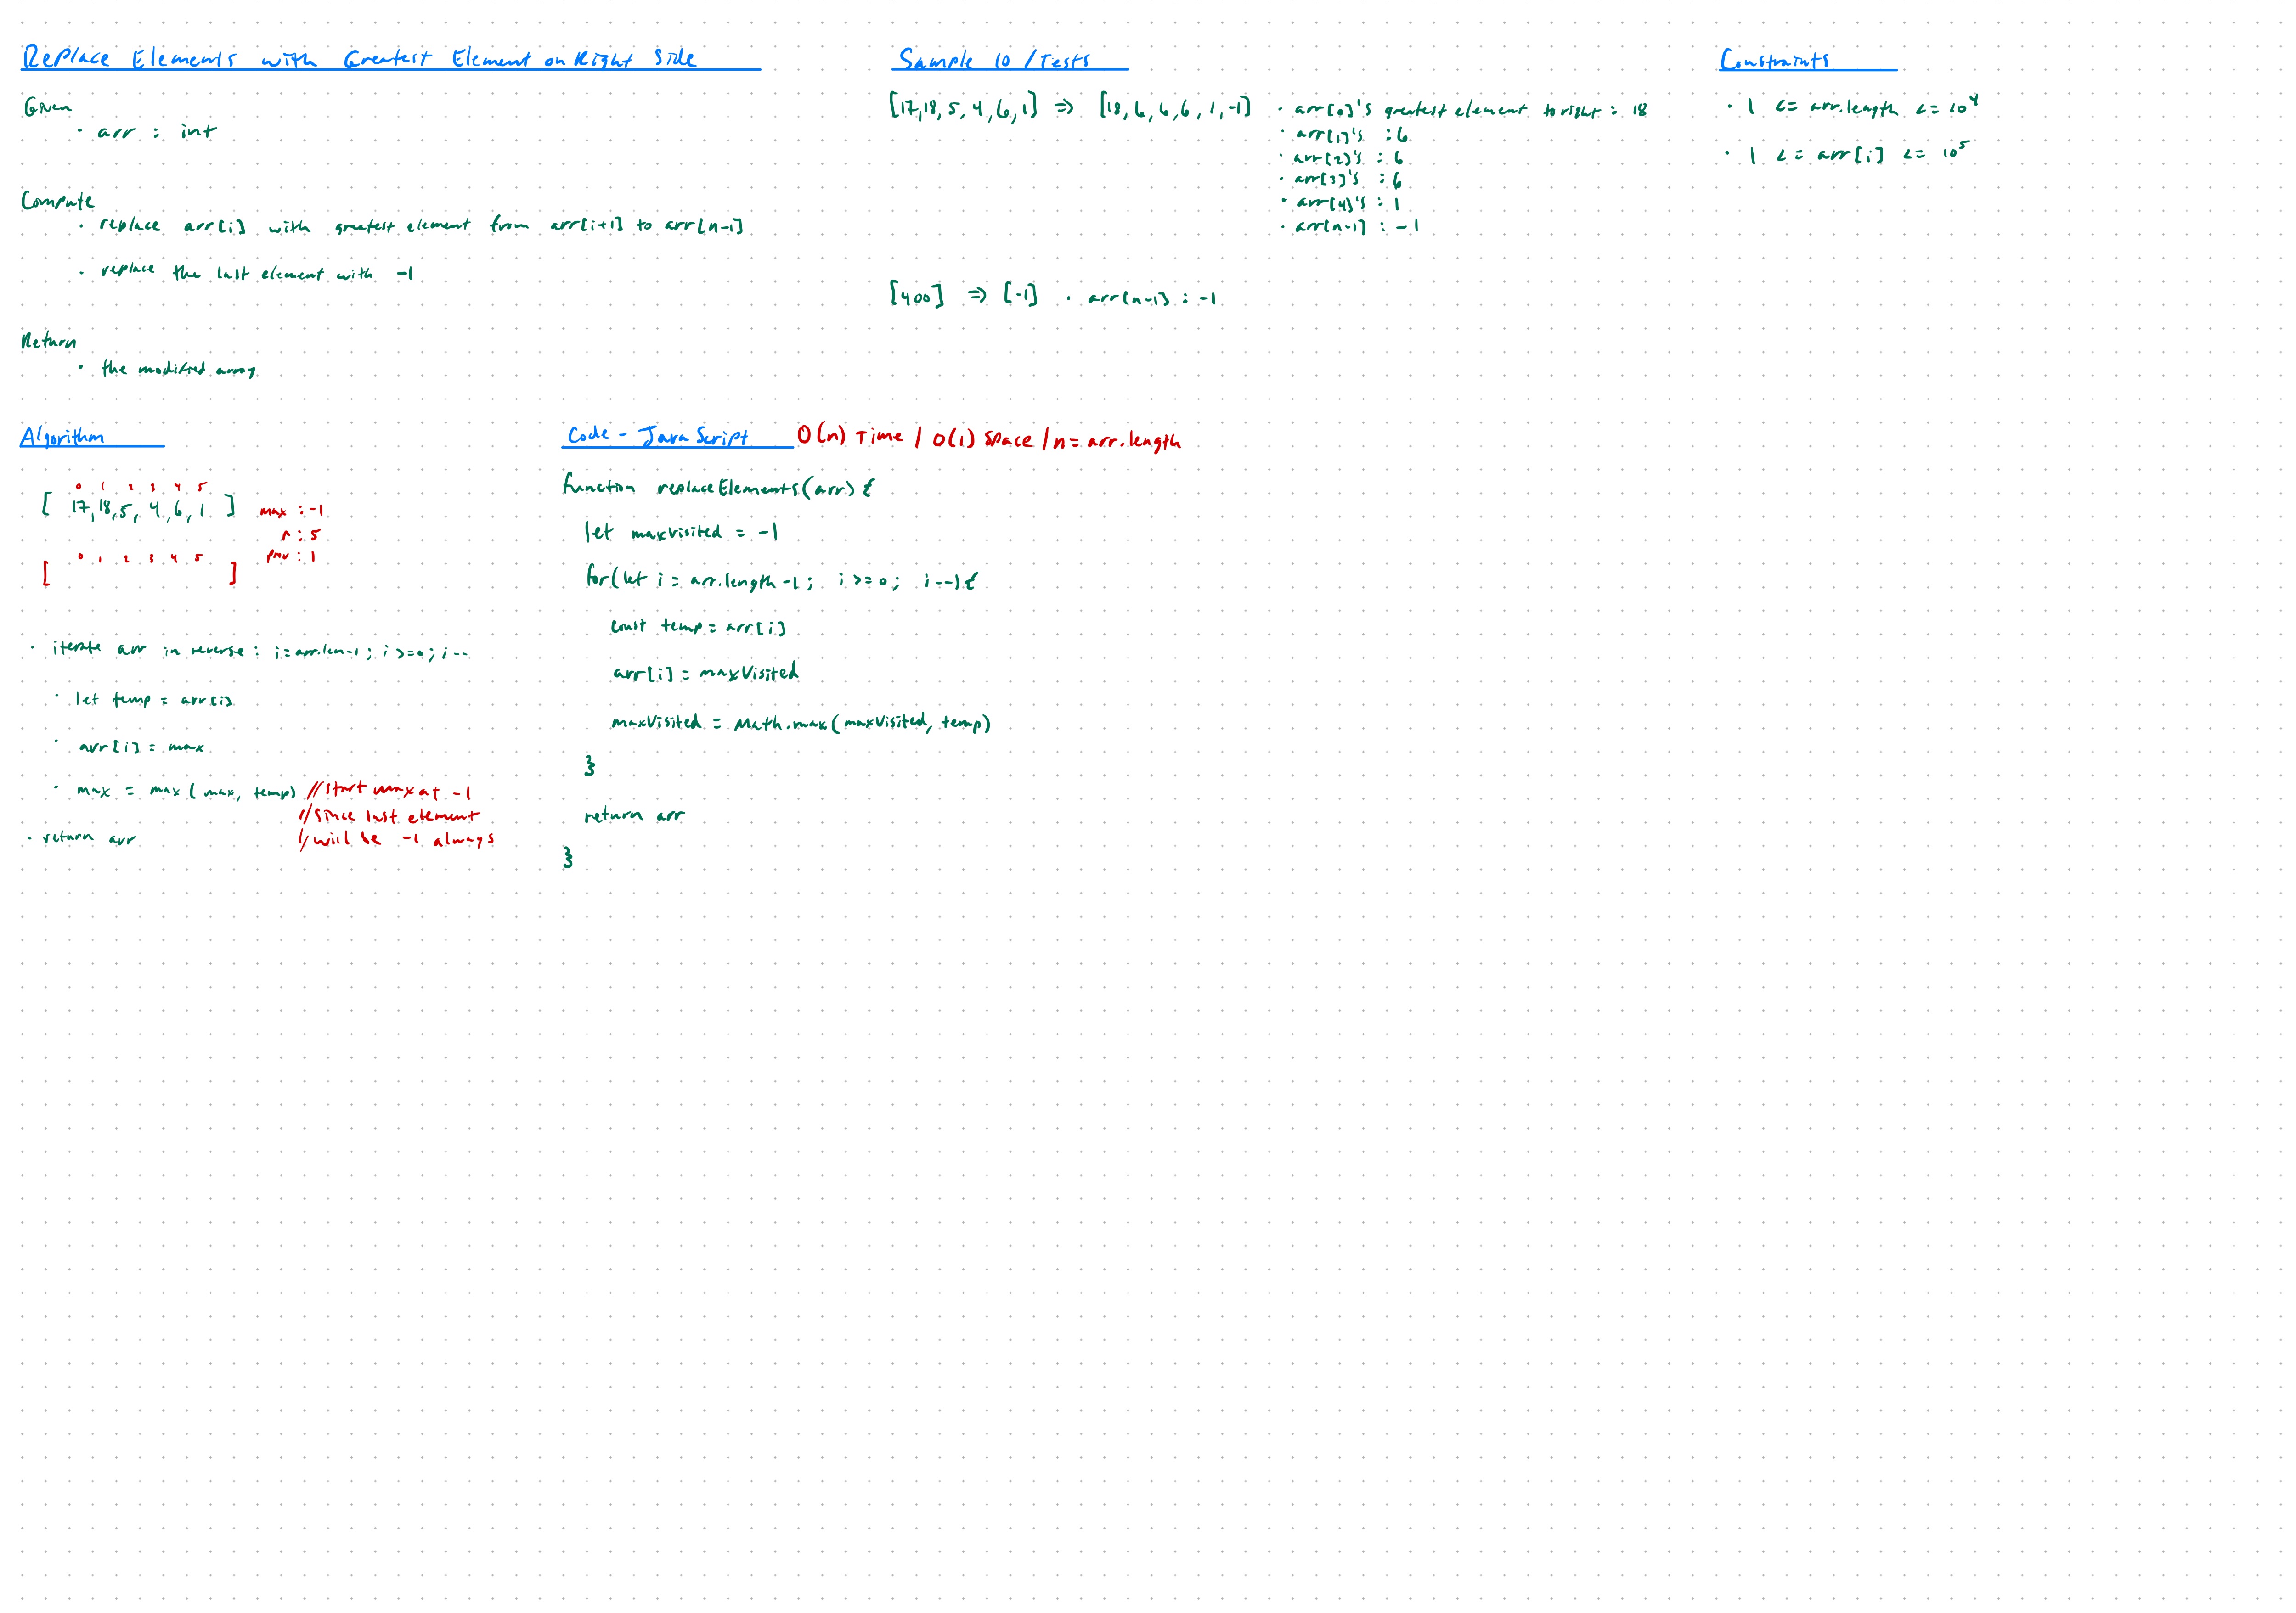 Replace Elements with Greatest Element on Right Side
Given
· arr : int
Compute
· replace arr[i] with greatest element from arr[i+1] to arr[n-1]
· replace the last element with -1
Return
· the modified array
Sample IO / Tests
[17,18, 5, 4, 6, 1] => [18, 6, 6, 6, 1, -1]
· arr[0]'s greatest element to right : 18
· arr[1]'s : 6
· arr[2]'s : 6
· arr[3]'s : 6
· arr[4]'s : 1
· arr[n-1] : -1
[400] => [-1] · arr[n-1] : -1
Constraints
· 1 <= arr.length <= 10⁴
· 1 <= arr[i] <= 10⁵
Algorithm
0 1 2 3 4 5
[ 17, 18, 5, 4, 6, 1 ] max : -1
r : 5
0 1 2 3 4 5 prev : 1
[ ]
· iterate arr in reverse : i=arr.len-1 ; i>=0 ; i--
· let temp = arr[i]
· arr[i] = max
· max = max ( max, temp) //start max at -1
//since last element
· return arr //will be -1 always
Code - JavaScript O(n) Time / O(1) Space / n = arr.length
function replaceElements(arr) {
let maxVisited = -1
for(let i = arr.length -1 ; i >= 0 ; i --) {
const temp = arr[i]
arr[i] = maxVisited
maxVisited = Math.max(maxVisited, temp)
}
return arr
}